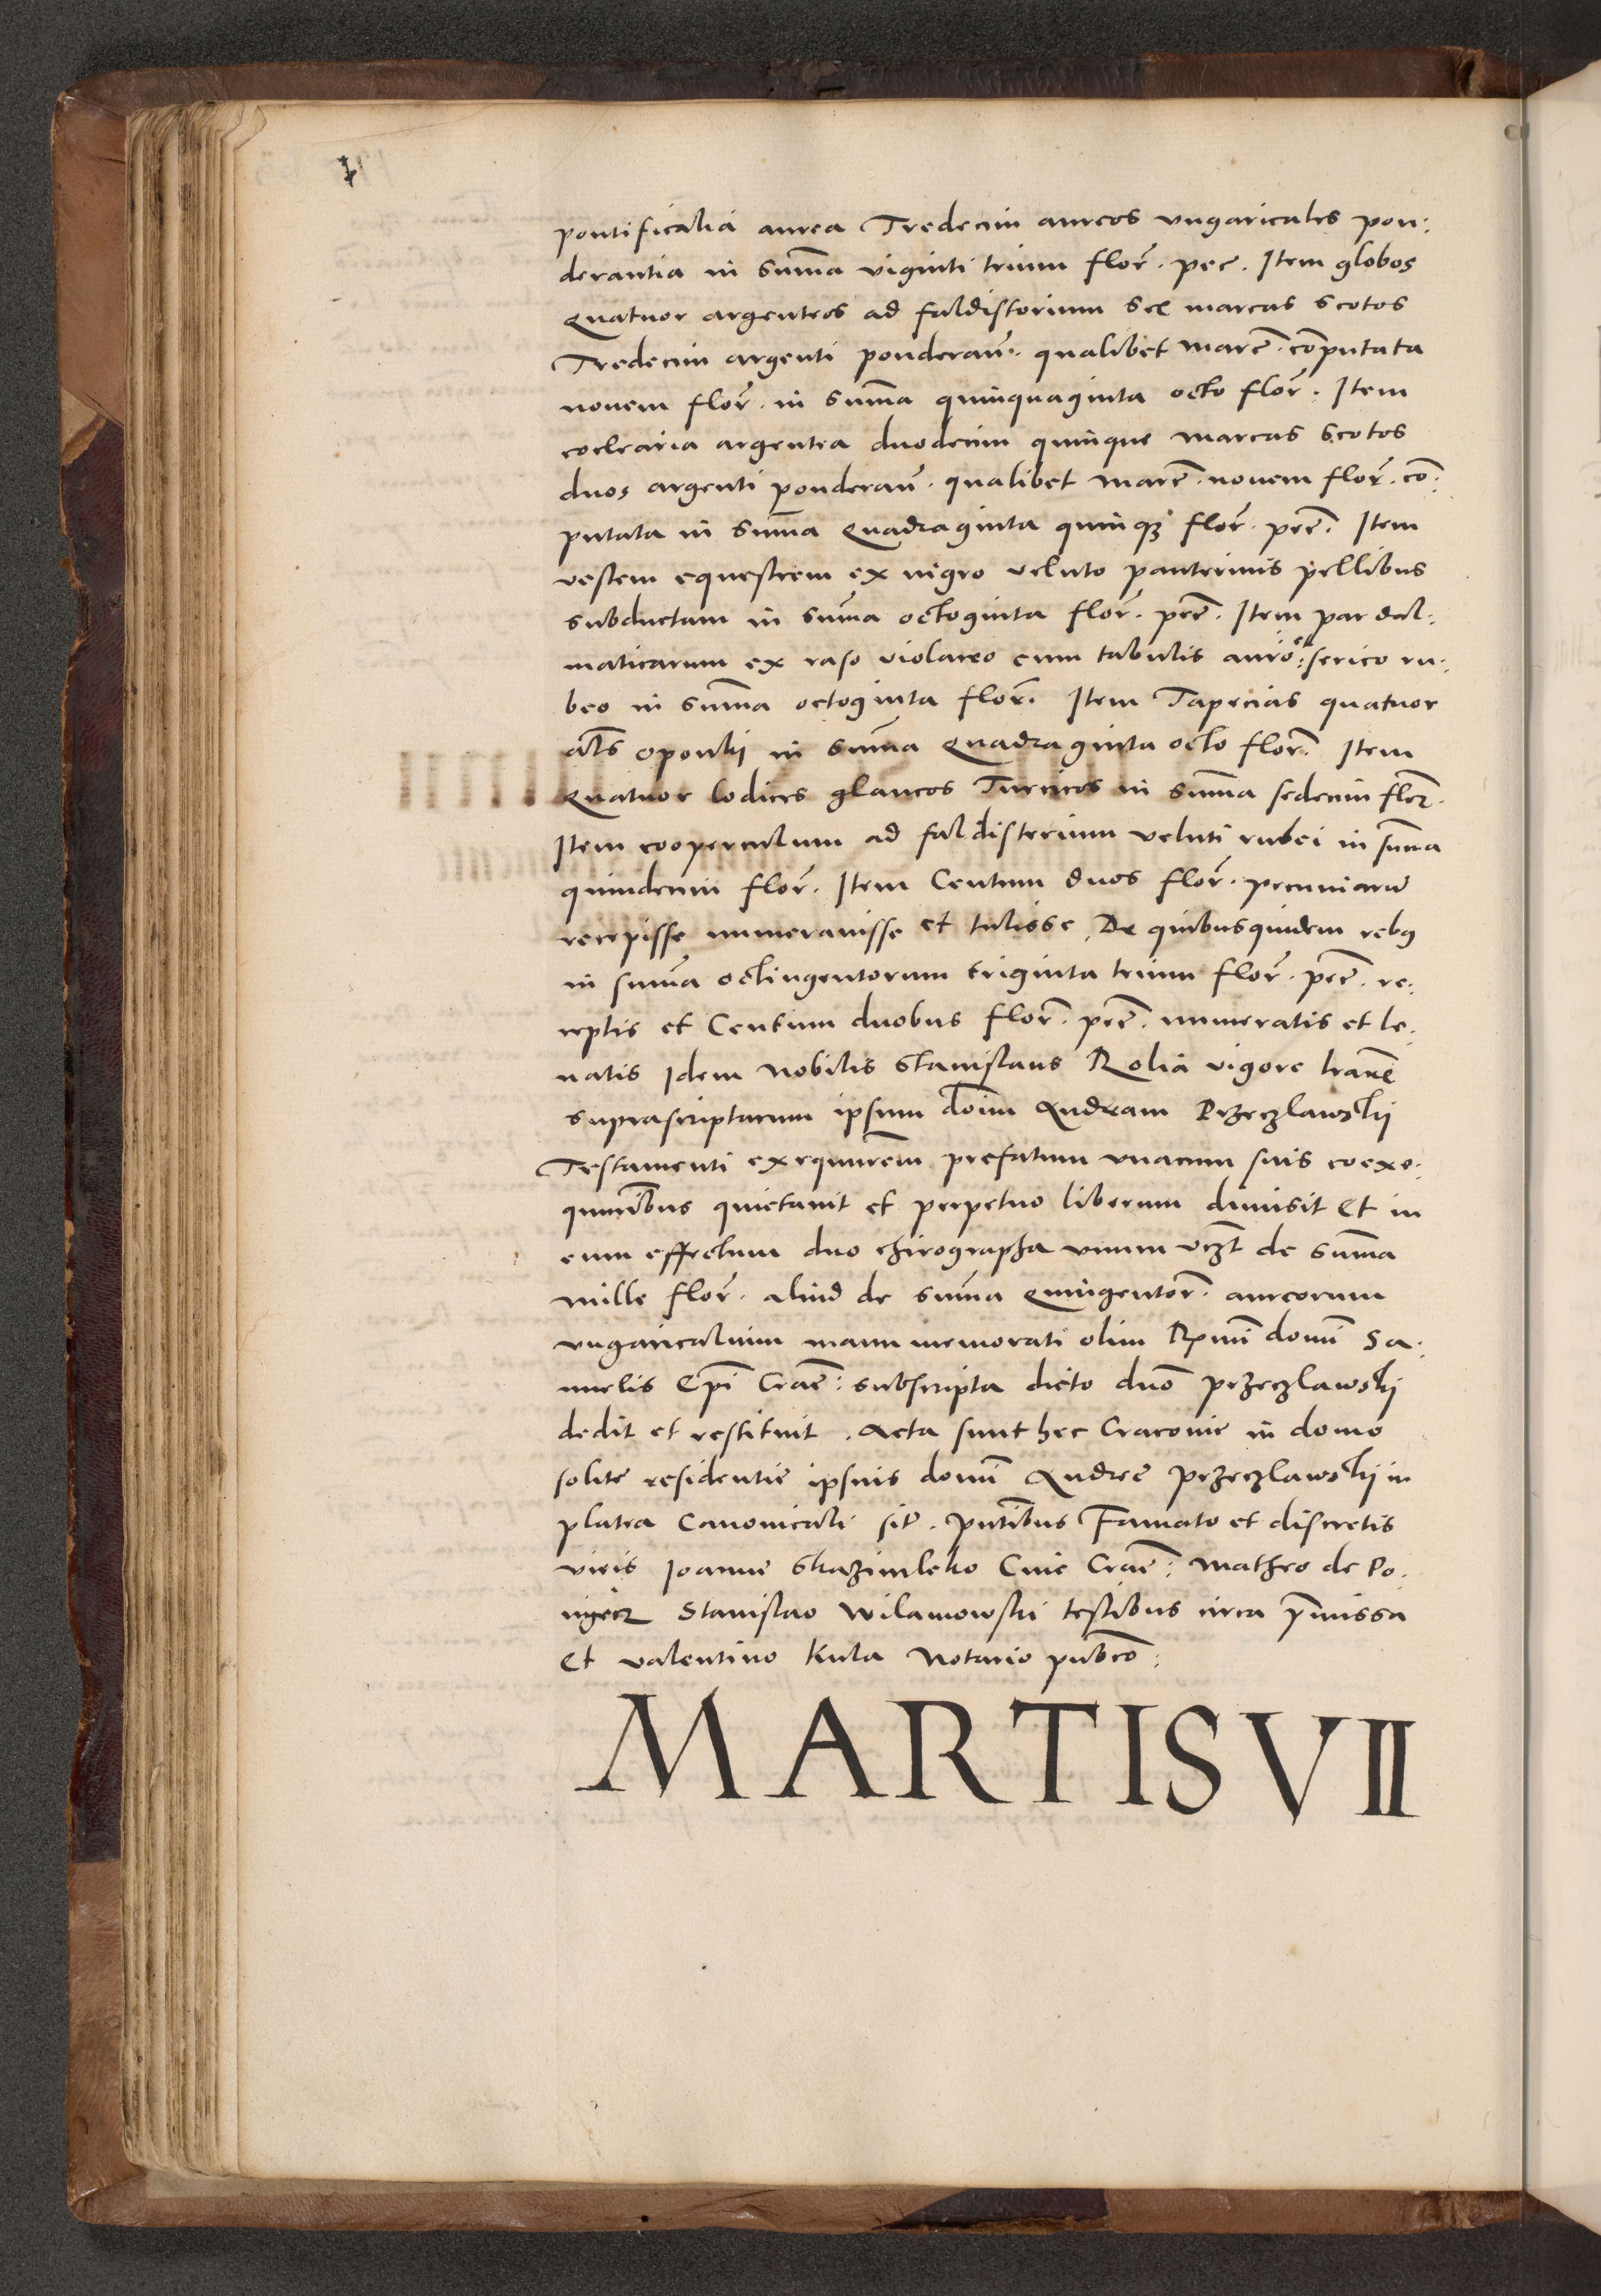 pontificalia aurea Tredecim aureos ungaricales pon:
derantia in summa viginti trium flor̃. pec. Item globos
Quatuor argenteos ad faldistorium sex marcas scotos
Tredecim argenti ponderañ. qualibet marc̃. cõputata
novem flor̃. in sum̃a quinquaginta octo flor̃. Item
coclearia argentea duodecim quinque marcas scotos
duos argenti ponderañ. qualibet marc̃. novem flor̃. cõ:
putata in sum̃a Quadraginta quinqȝ flor̃. pec̃. Item
vestem equestrem ex nigro veluto panterinis pellibus
subductam in sum̃a octoginta flor̃. pec̃. Item par dal:
maticarum ex raso violaceo cum tabulis auro: et serico ru:
beo in sum̃a octoginta flor̃. Item Tapecias quatuor
al̃s oponki in sum̃a Quadraginta octo flor̃. Item
Quatuor lodices glaucos Turcicos in sum̃a sedecim flor̃.
Item cooperculum ad faldisterium veluti rubei in sum̃a
quindecim flor̃. Item Centum duos flor̃. pecuniarũ
recepisse numeravisse et tulisse. De quibusquidem rebus
in sum̃a octingentorum triginta trium flor̃. pec̃. re:
ceptis et Centum duobus flor̃. pec̃. numeratis et le:
vatis Idem Nobilis Stanislaus Rolia vigore
suprascriptarum ipsum dom̃ Andream Przeczlawski
Testamenti exequutorem prefatum unacum suis coexe:
quutoribus quietavit et perpetuo liberum dimisit Et in
eum effectum duo chirographa unum vczt de sum̃a
mille flor̃. aliud de sum̃a Quingentor̃. aureorum
ungaricalium manu memorati olim Rmi domi Sa:
muelis Epi Crac̃: subscripta dicto dno Przeczlawski
dedit et restituit. Acta sunt hec Cracovie in domo
solite residentie ipsius domi Andree Przeczlawski in
platea Canonicali sit̃. pñtibus Famato et discretis
viris Joanne Skazimleko Cive Crac̃: Matheo de Po:
Stanislao Wilamowski testibus circa p̃missa
Et Valentino Kula Notario pub̃co:
MARTIS VII